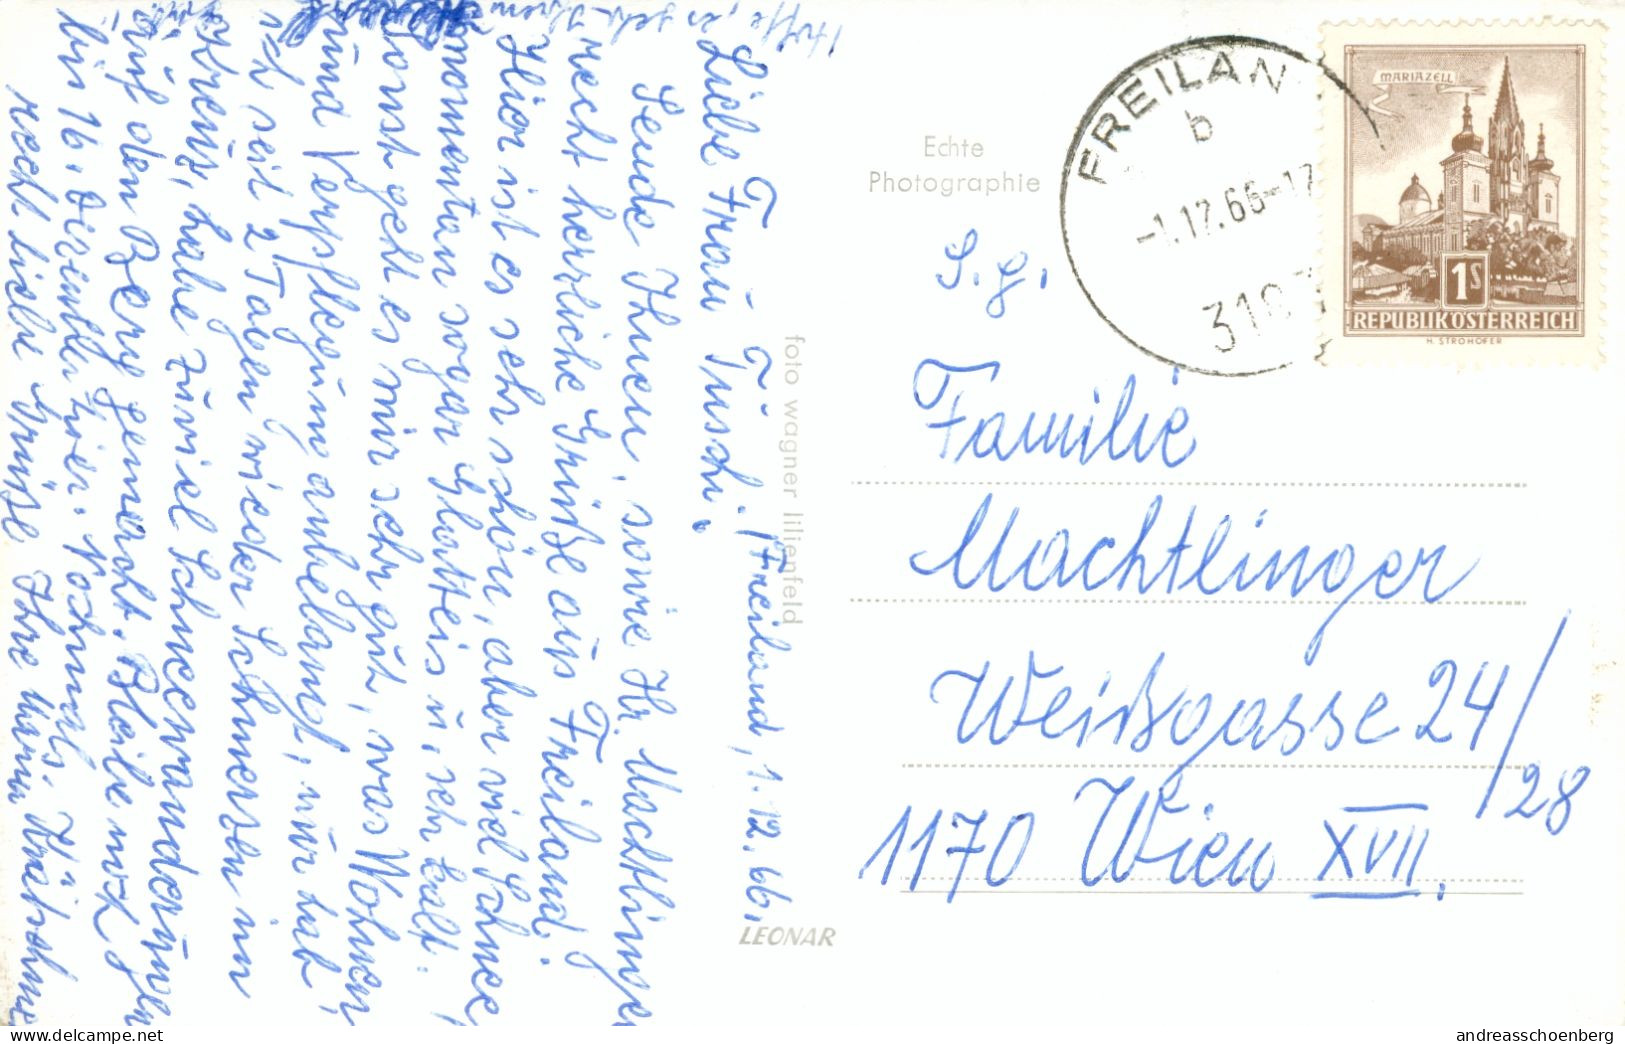 Freiland, 1.12.66.
Liebe Frau Tuschi,
Sende Ihnen, sowie Hr. Machtlinger
recht herzliche Grüße aus Freiland.
Hier ist es sehr schön, aber viel Schnee,
momentan sogar Glatteis u. sehr kalt.
Sonst geht es mir sehr gut, was Wohnen
und Verpflegung anbelangt, nur hab'
ich seit 2 Tagen wieder Schmerzen im
Kreuz, habe zuviel Schneewanderungen
auf den Berg gemacht. Bleibe noch
bis 16. Dezember hier. Nochmals
recht liebe Grüße Ihre
Hoffe, es geht Ihnen
Echte
Photographie
foto wagner lilienfeld
LEONAR
FREILAN
b
-1.12.66-17
MARIAZELL
1S
REPUBLIK ÖSTERREICH
H. STROHOFER
S. g.
Familie
Machtlinger
Weißgasse 24/28
1170 Wien XVII.
delcampe.net
andreasschoenberg